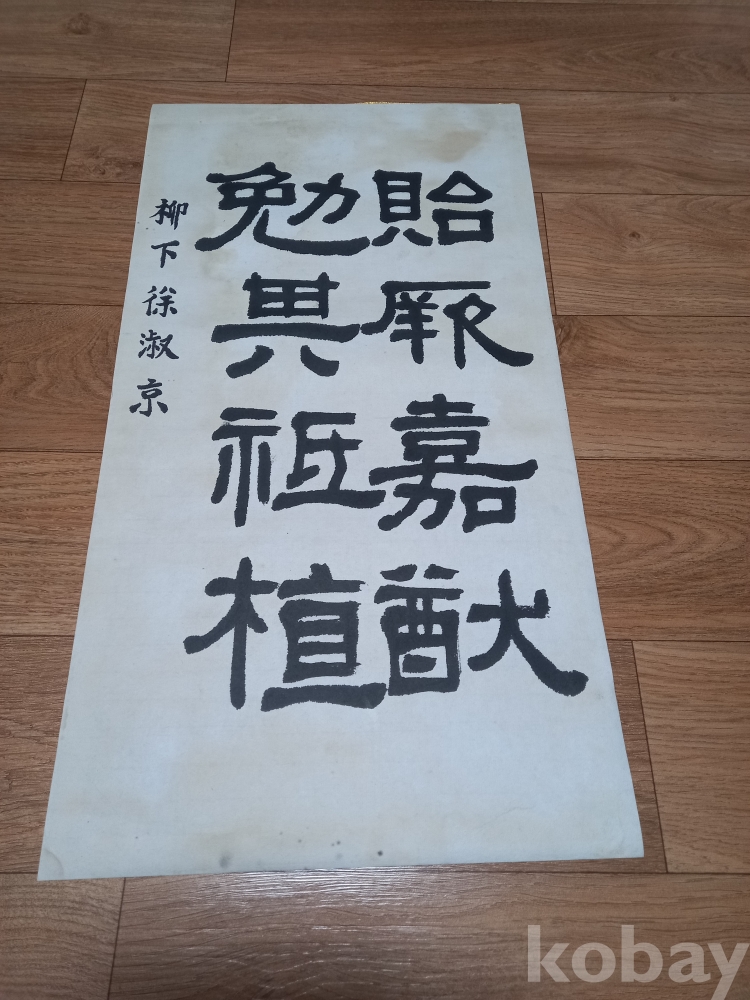 貽厥嘉猷
勉其祗植
柳下徐淑京
kobay